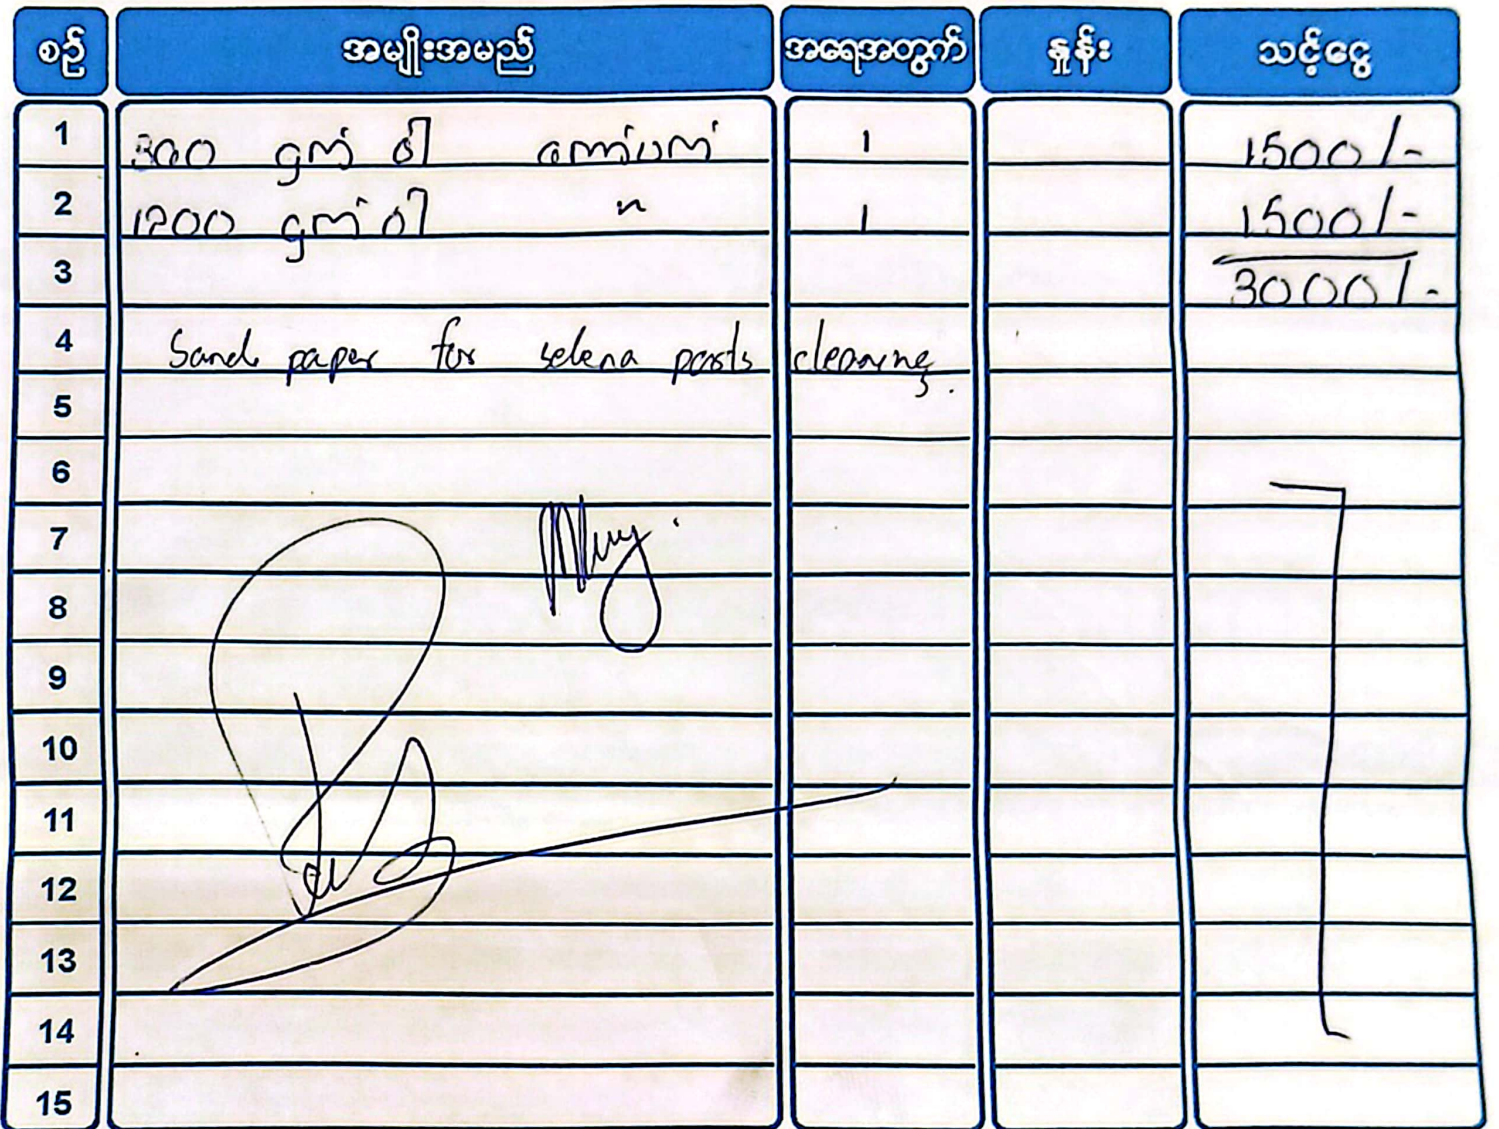 စဉ် အမျိုးအမည် အရေအတွက် နှုန်း သင့်ငွေ
1 300 ဂွက် ဝါ ကော်ပတ် 1 1500/-
2 1200 ဂွက် ဝါ " 1 1500/-
3 3000/-
4 Sand paper for selena parts cleaning.
5
6
7
8
9
10
11
12
13
14
15